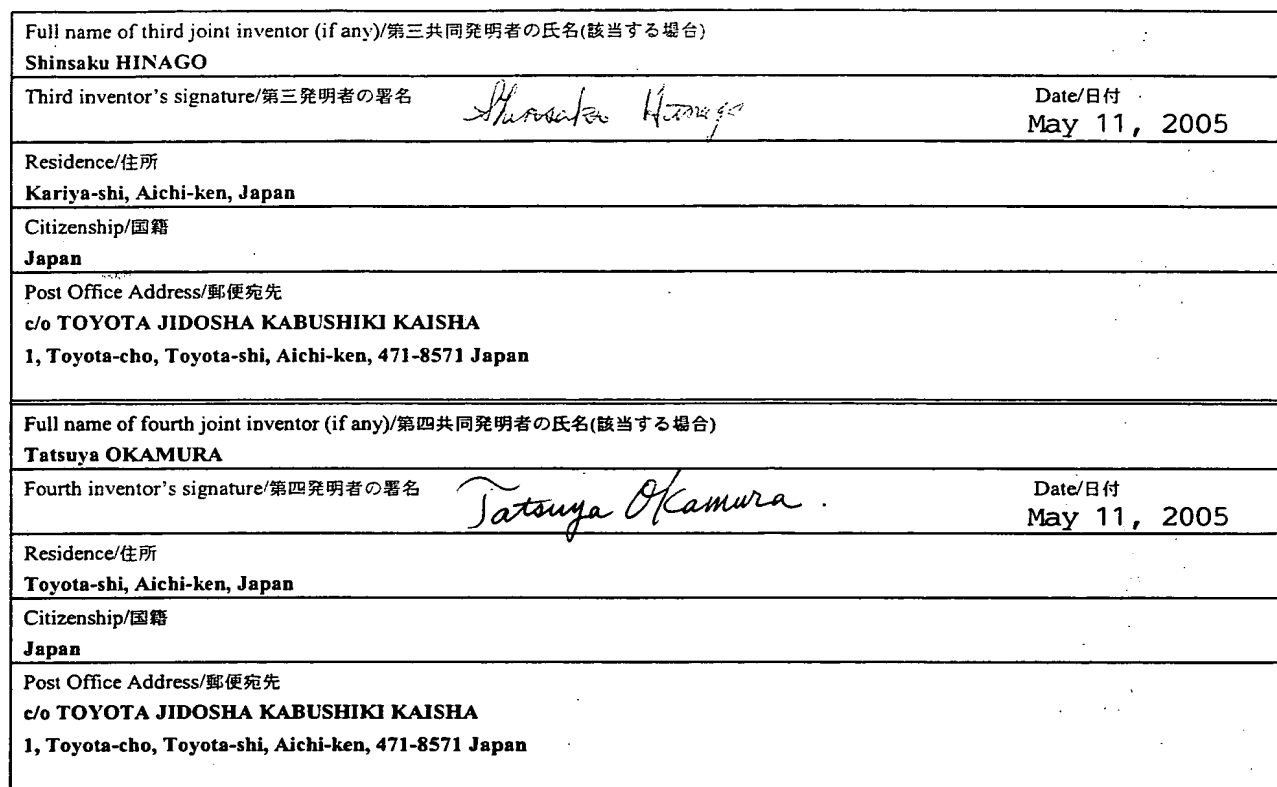 Full name of third joint inventor (if any)/第三共同発明者の氏名(該当する場合)
Shinsaku HINAGO
Third inventor's signature/第三発明者の署名 Shinsaku Hinago Date/日付
May 11, 2005
Residence/住所
Kariya-shi, Aichi-ken, Japan
Citizenship/国籍
Japan
Post Office Address/郵便宛先
c/o TOYOTA JIDOSHA KABUSHIKI KAISHA
1, Toyota-cho, Toyota-shi, Aichi-ken, 471-8571 Japan
Full name of fourth joint inventor (if any)/第四共同発明者の氏名(該当する場合)
Tatsuya OKAMURA
Fourth inventor's signature/第四発明者の署名 Tatsuya Okamura. Date/日付
May 11, 2005
Residence/住所
Toyota-shi, Aichi-ken, Japan
Citizenship/国籍
Japan
Post Office Address/郵便宛先
c/o TOYOTA JIDOSHA KABUSHIKI KAISHA
1, Toyota-cho, Toyota-shi, Aichi-ken, 471-8571 Japan